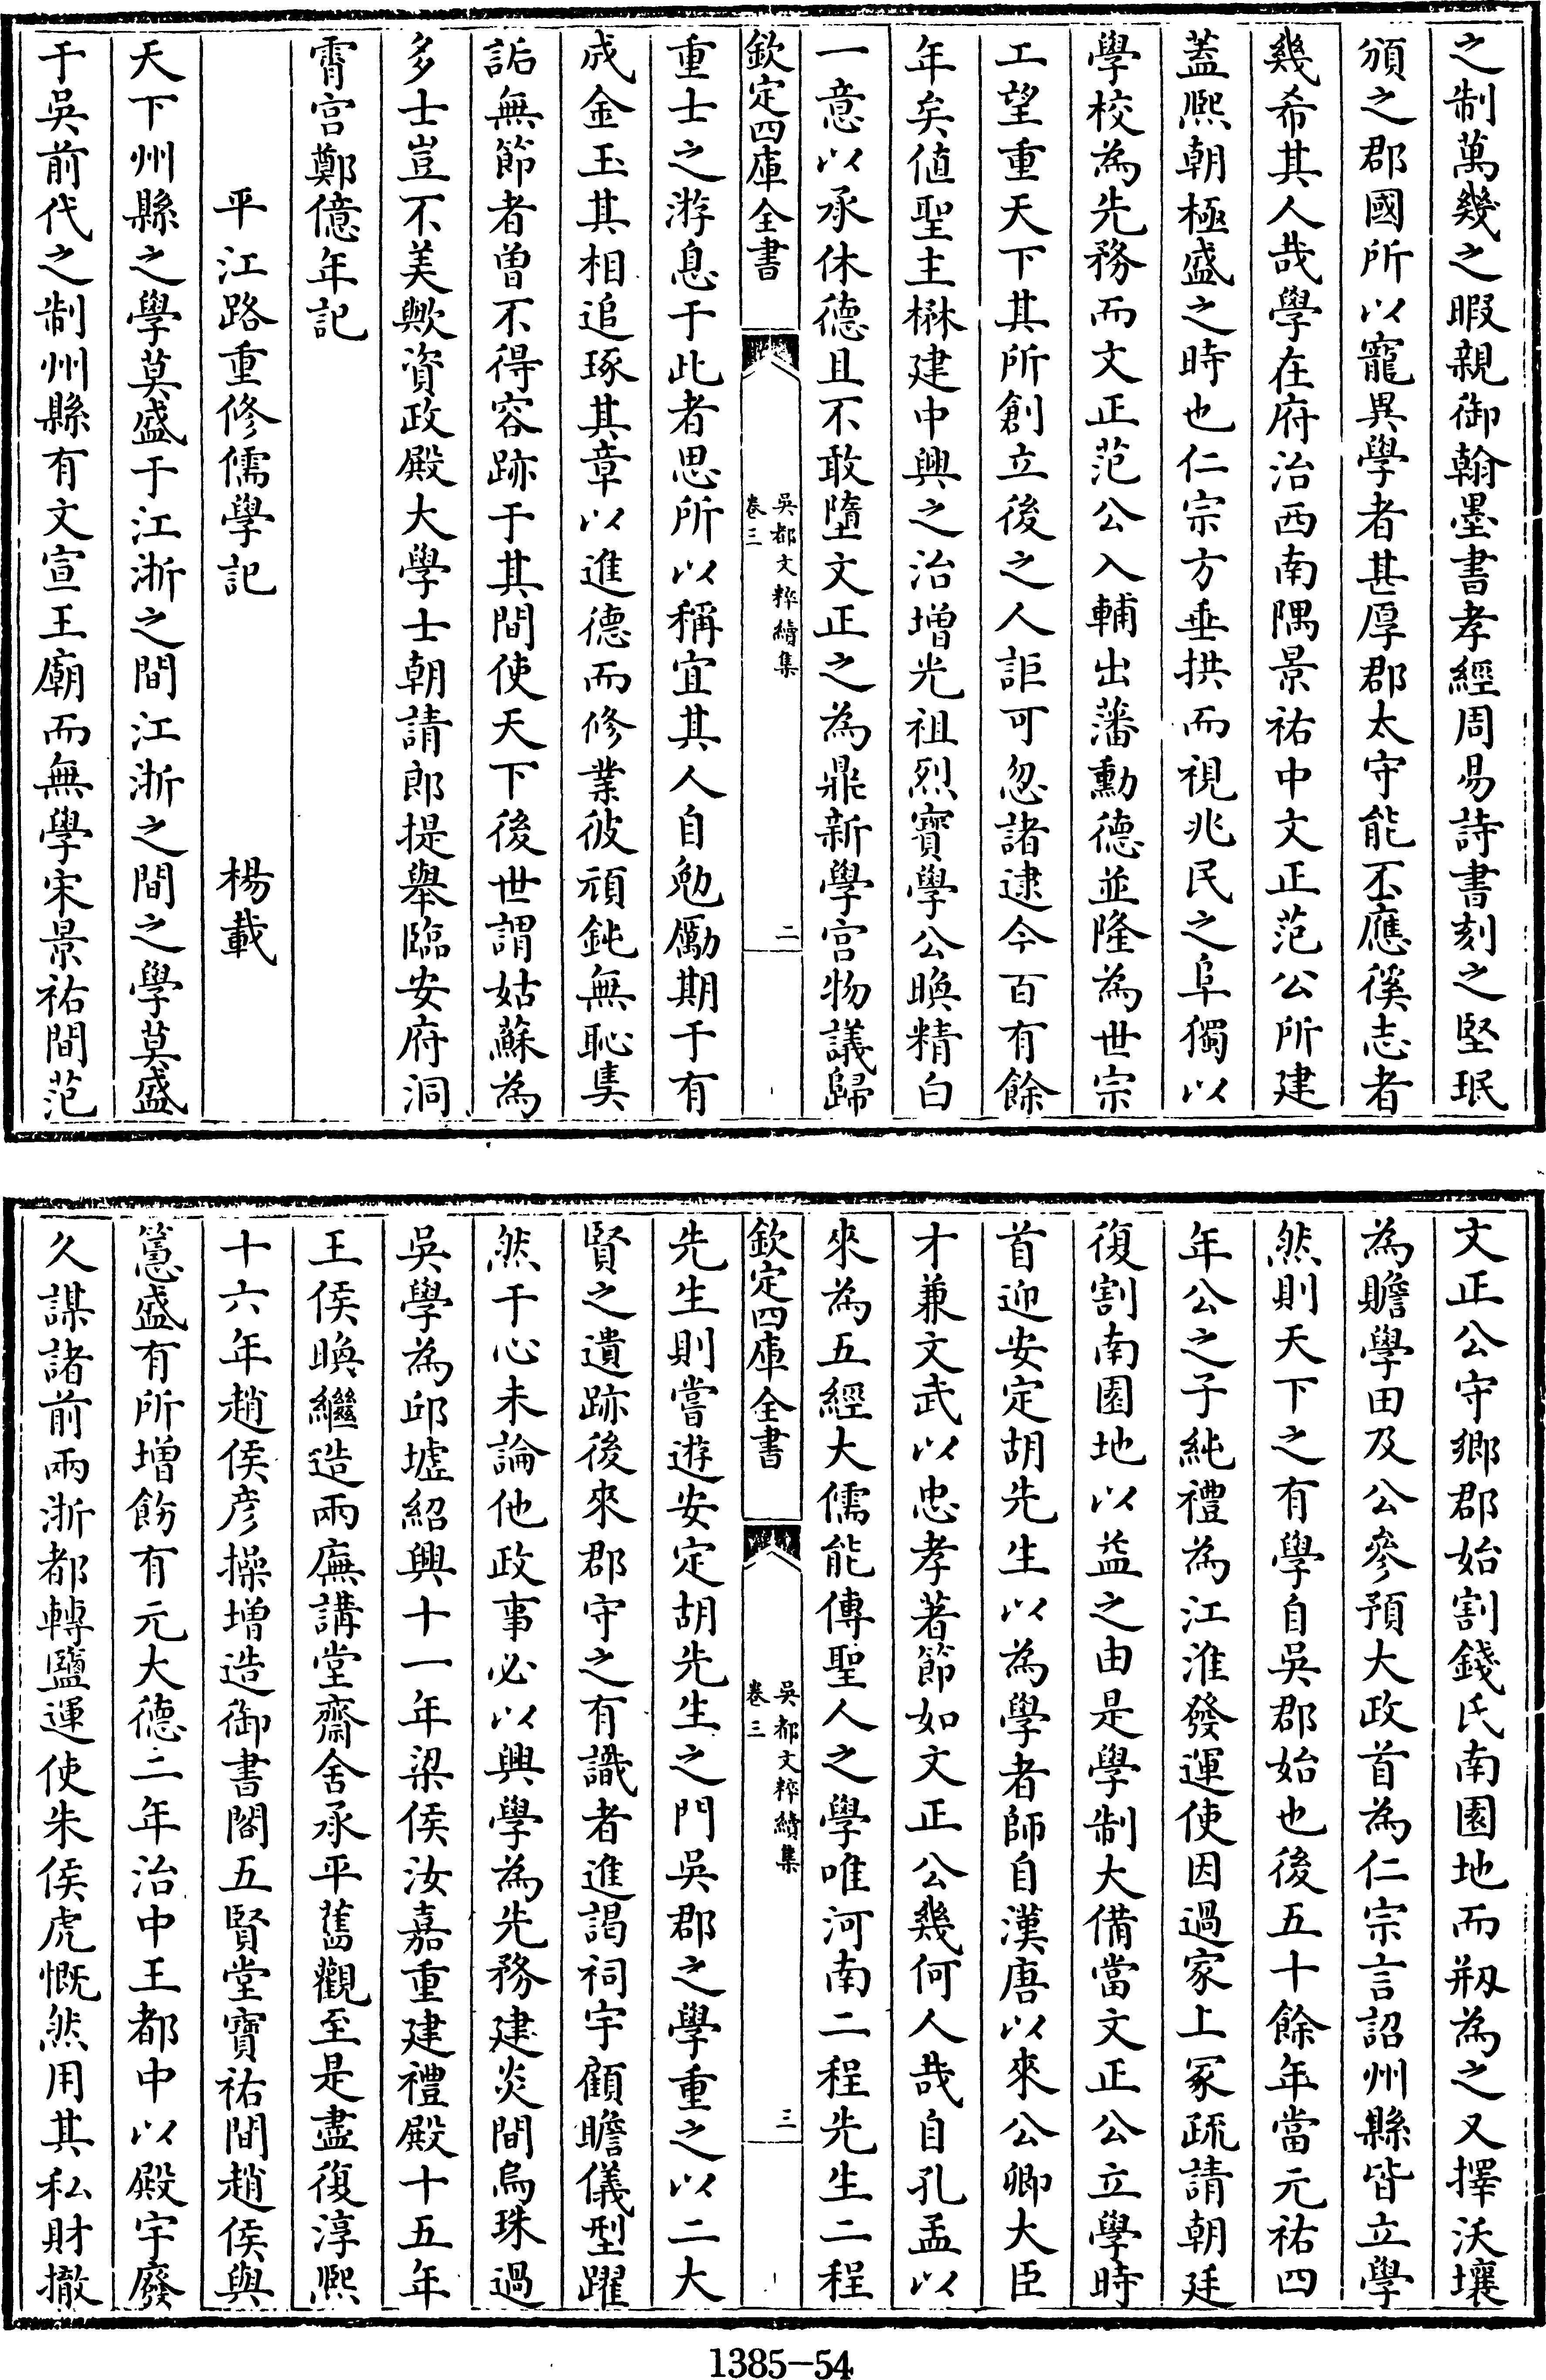 之制萬幾之暇親御翰墨書孝經周易詩書刻之堅珉
頒之郡國所以寵異學者甚厚郡太守能丕應徯志者
幾希其人哉學在府治西南隅景祐中文正范公所建
蓋熙朝極盛之時也仁宗方垂拱而視兆民之阜獨以
學校為先務而文正范公入輔出藩勳德並隆為世宗
工望重天下其所創立後之人詎可忽諸逮今百有餘
年矣值聖主楙建中興之治增光祖烈寶學公暎精白
一意以承休德且不敢墮文正之為鼎新學宫物議歸
欽定四庫全書
吳都文粹續集
卷三
二
重士之游息于此者思所以稱宜其人自勉勵期于有
成金玉其相追琢其章以進德而修業彼頑鈍無恥奊
詬無節者曾不得容跡于其間使天下後世謂姑蘇為
多士豈不美歟資政殿大學士朝請郎提舉臨安府洞
霄宫鄭億年記
平江路重修儒學記
楊載
天下州縣之學莫盛于江浙之間江浙之間之學莫盛
于吳前代之制州縣有文宣王廟而無學宋景祐間范
文正公守鄉郡始割錢氏南園地而剏為之又擇沃壤
為贍學田及公參預大政首為仁宗言詔州縣皆立學
然則天下之有學自吳郡始也後五十餘年當元祐四
年公之子純禮為江淮發運使因過家上冢疏請朝廷
復割南園地以益之由是學制大備當文正公立學時
首迎安定胡先生以為學者師自漢唐以來公卿大臣
才兼文武以忠孝著節如文正公幾何人哉自孔孟以
來為五經大儒能傳聖人之學唯河南二程先生二程
欽定四庫全書
吳都文粹續集
卷三
三
先生則嘗遊安定胡先生之門吳郡之學重之以二大
賢之遺跡後來郡守之有識者進謁祠宇顧瞻儀型躍
然于心未論他政事必以興學為先務建炎間烏珠過
吳學為邱墟紹興十一年梁侯汝嘉重建禮殿十五年
王侯㬇繼造兩廡講堂齋舍承平舊觀至是盡復淳熙
十六年趙侯彦操增造御書閣五賢堂寶祐間趙侯與
𥲅盛有所增飭有元大德二年治中王都中以殿宇廢
久謀諸前兩浙都轉鹽運使朱侯虎慨然用其私財撤
1385-54